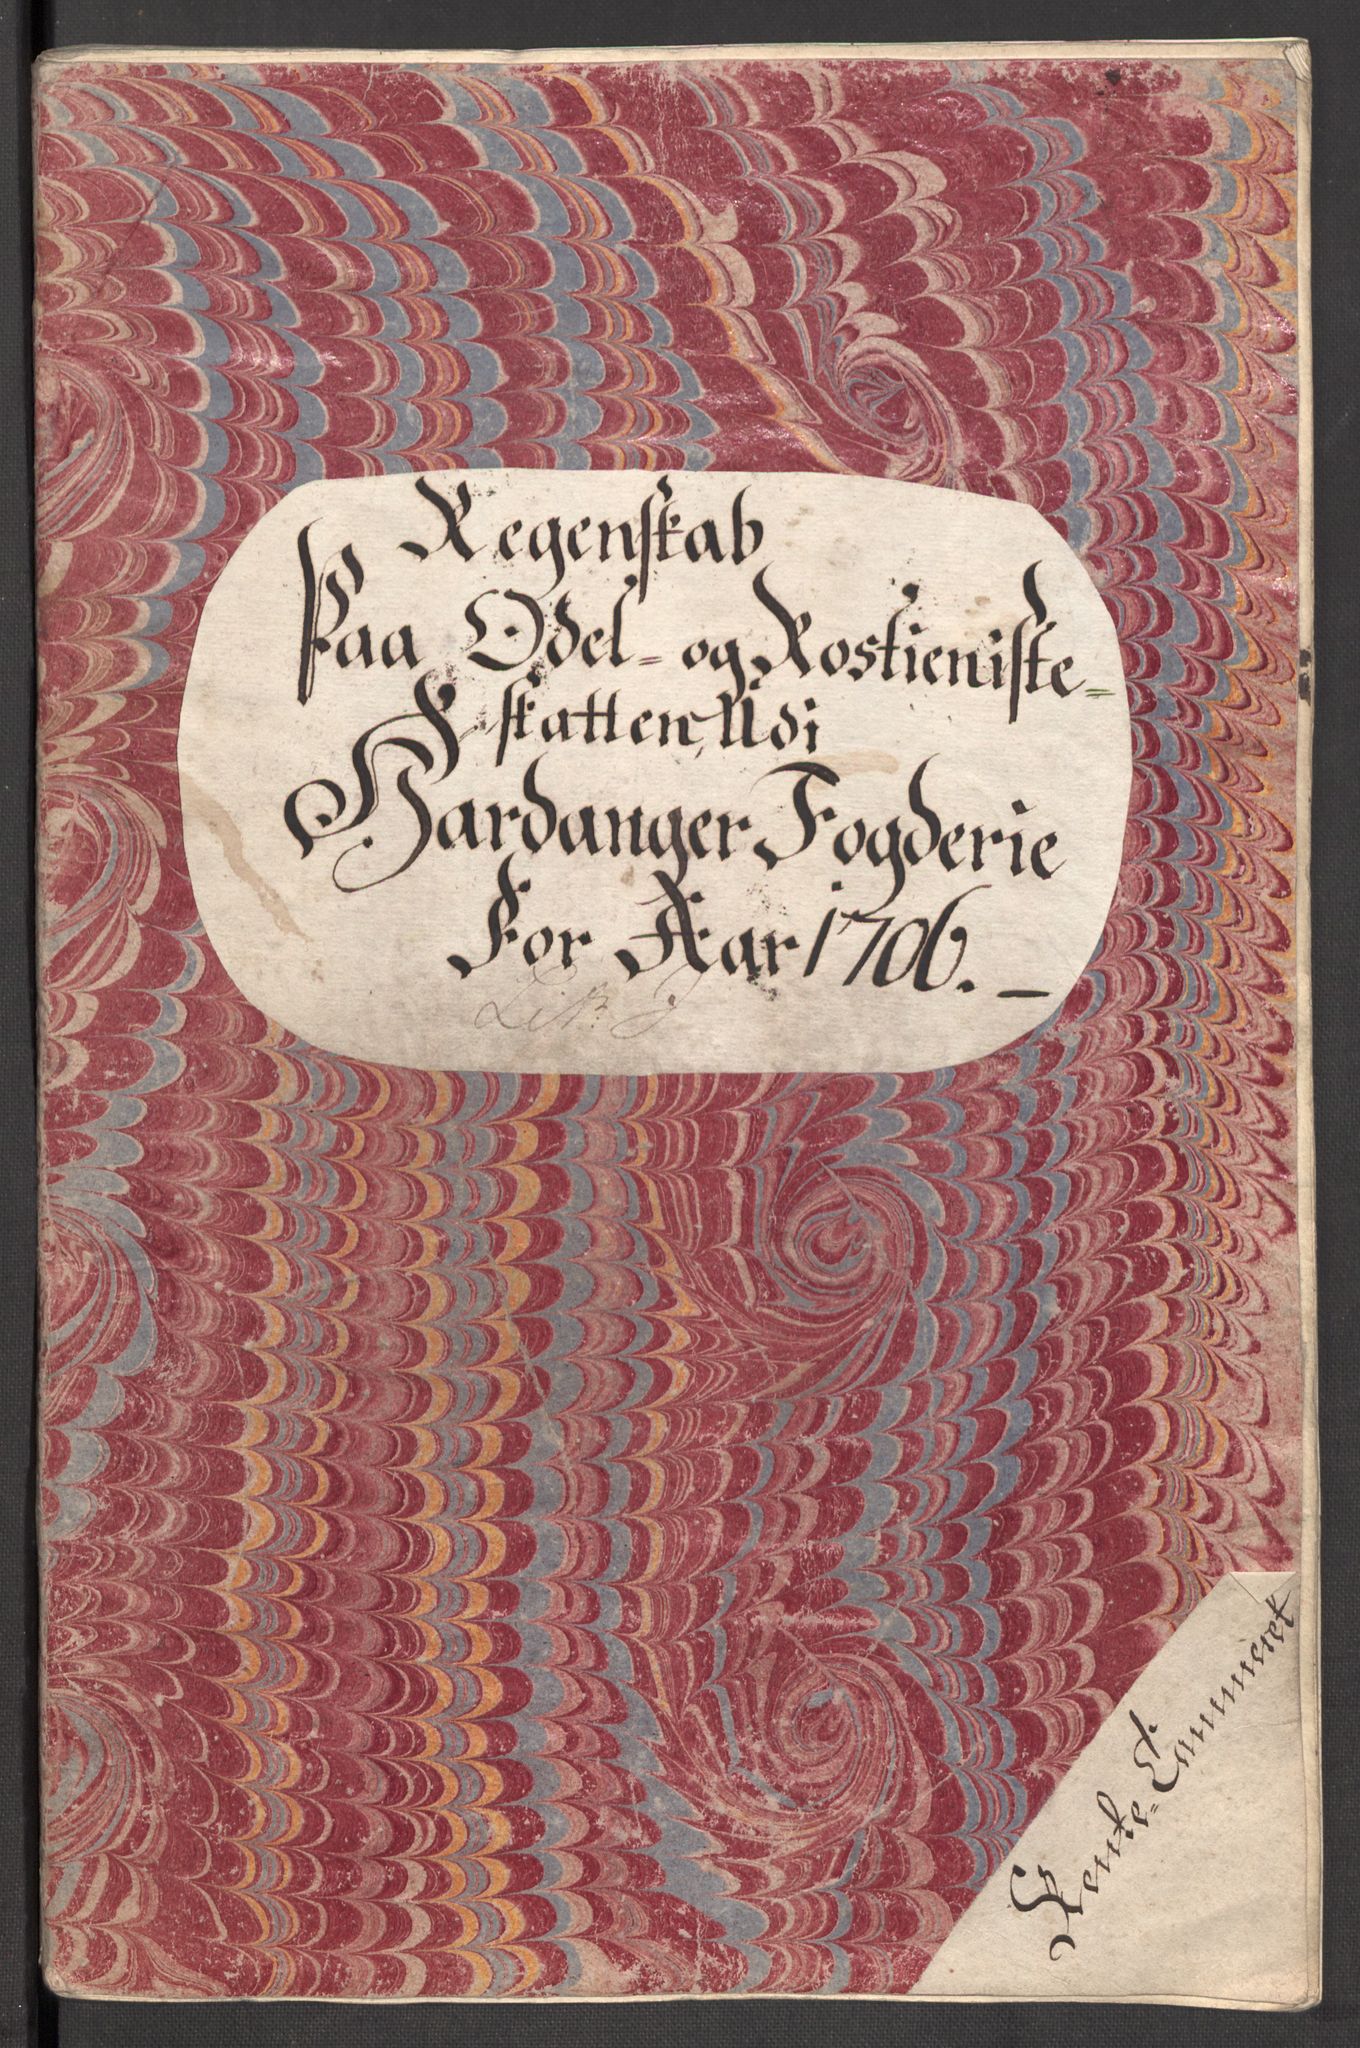 Regenskab
Paa Odel- og Rostieniste-
skatten, Udi
Hardanger Fogderie
For Aar 1706. -
Litr. J
Rente-Cammeret